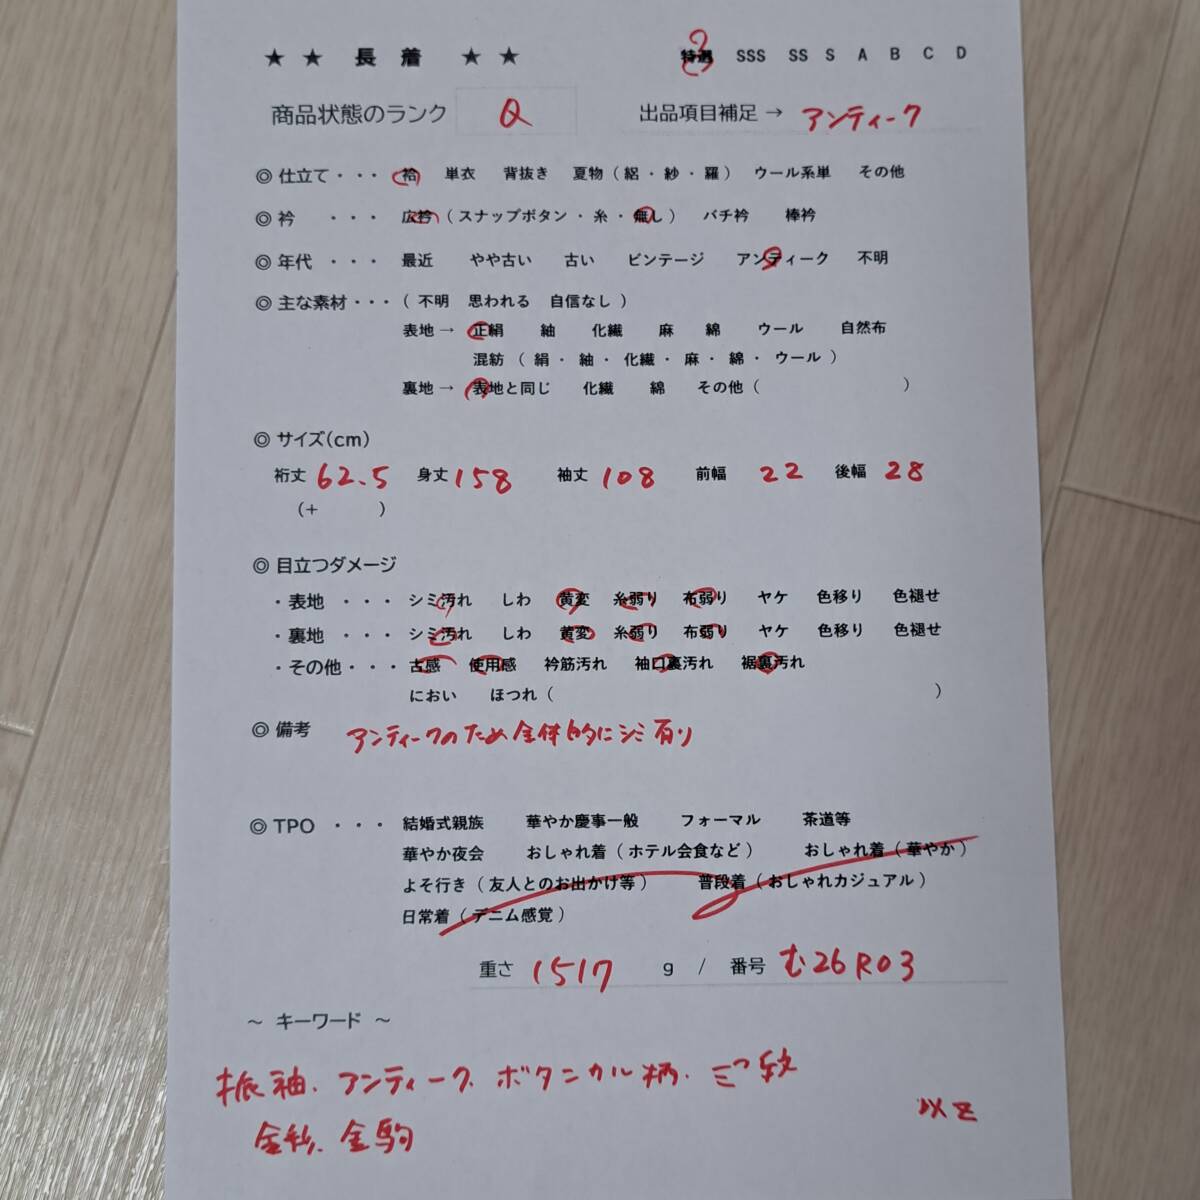 ★ ★ 長 着 ★ ★ 特選 SSS SS S A B C D
商品状態のランク Q 出品項目補足 → アンティーク
◎ 仕立て ・・・ 袷 単衣 背抜き 夏物 ( 絽 ・ 紗 ・ 羅 ) ウール系単 その他
◎ 衿 ・・・ 広衿 ( スナップボタン ・ 糸 ・ 無し ) バチ衿 棒衿
◎ 年代 ・・・ 最近 やや古い 古い ビンテージ アンティーク 不明
◎ 主な素材 ・・・ ( 不明 思われる 自信なし )
表地 → 正絹 紬 化繊 麻 綿 ウール 自然布
混紡 ( 絹 ・ 紬 ・ 化繊 ・ 麻 ・ 綿 ・ ウール )
裏地 → 表地と同じ 化繊 綿 その他 ( )
◎ サイズ(cm)
裄丈 62.5 身丈 158 袖丈 108 前幅 22 後幅 28
(+ )
◎ 目立つダメージ
・表地 ・・・ シミ汚れ しわ 黄変 糸弱り 布弱り ヤケ 色移り 色褪せ
・裏地 ・・・ シミ汚れ しわ 黄変 糸弱り 布弱り ヤケ 色移り 色褪せ
・その他 ・・・ 古感 使用感 衿筋汚れ 袖口裏汚れ 裾裏汚れ
におい ほつれ ( )
◎ 備考 アンティークのため全体的にシミ有り
◎ TPO ・・・ 結婚式親族 華やか慶事一般 フォーマル 茶道等
華やか夜会 おしゃれ着 ( ホテル会食など ) おしゃれ着 ( 華やか )
よそ行き ( 友人とのお出かけ等 ) 普段着 ( おしゃれカジュアル )
日常着 ( デニム感覚 )
重さ 1517 g / 番号 む26R03
～ キーワード ～
振袖、アンティーク、ボタニカル柄、三つ紋
金彩、金駒